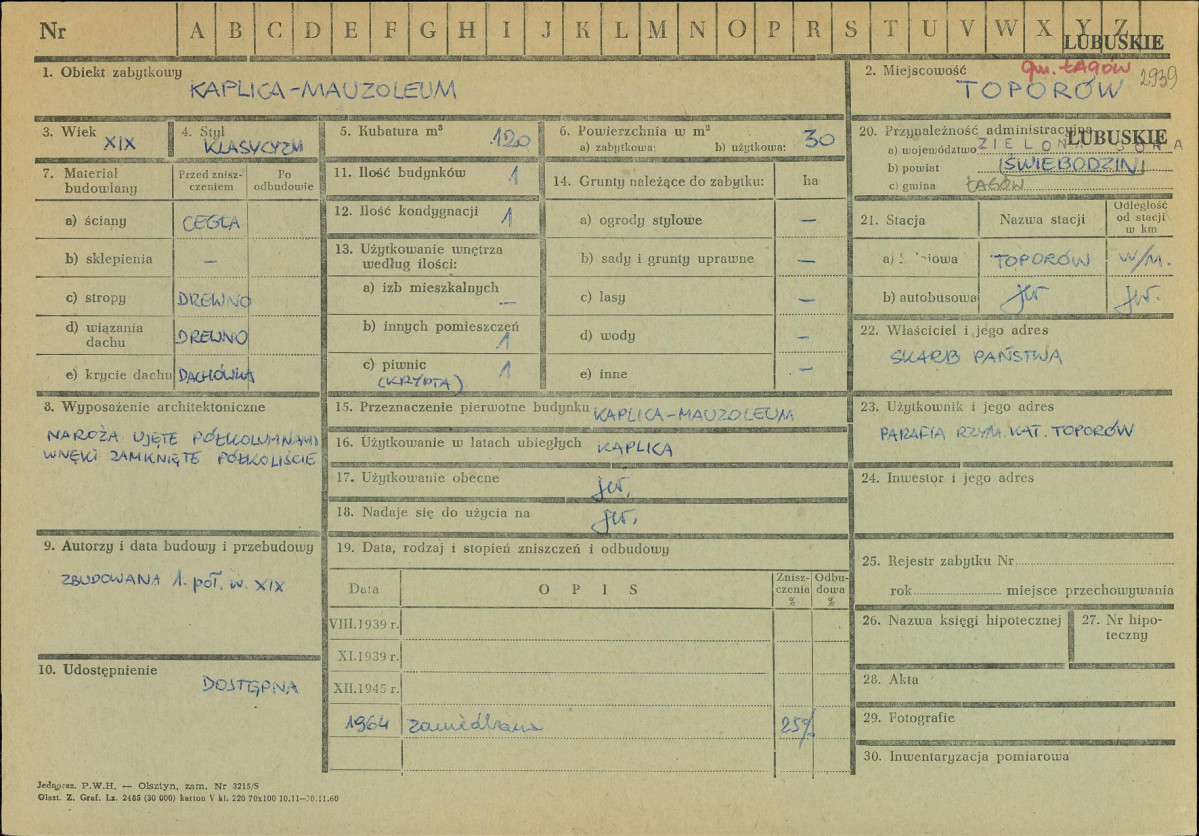 Nr A B C D E F G H I J K L M N O P R S T U V W X Y Z
LUBUSKIE
1. Obiekt zabytkowy
KAPLICA-MAUZOLEUM
2. Miejscowość
gm. ŁAGÓW
TOPORÓW
2939
3. Wiek
XIX
4. Styl
KLASYCYZM
5. Kubatura m³
120
6. Powierzchnia w m²
a) zabytkowa: b) użytkowa: 30
7. Materiał budowlany
Przed zniszczeniem
Po odbudowie
a) ściany CEGŁA
b) sklepienia —
c) stropy DREWNO
d) wiązania dachu DREWNO
e) krycie dachu DACHÓWKA
8. Wyposażenie architektoniczne
NAROŻA UJĘTE PÓŁKOLUMNAMI
WNĘKI ZAMKNIĘTE PÓŁKOLIŚCIE
9. Autorzy i data budowy i przebudowy
ZBUDOWANA 1. poł. w. XIX
10. Udostępnienie
DOSTĘPNA
11. Ilość budynków 1
12. Ilość kondygnacji 1
13. Użytkowanie wnętrza
według ilości:
a) izb mieszkalnych —
b) innych pomieszczeń 1
c) piwnic 1
(KRYPTA)
14. Grunty należące do zabytku: ha
a) ogrody stylowe —
b) sady i grunty uprawne —
c) lasy —
d) wody —
e) inne —
15. Przeznaczenie pierwotne budynku KAPLICA-MAUZOLEUM
16. Użytkowanie w latach ubiegłych KAPLICA
17. Użytkowanie obecne jw.
18. Nadaje się do użycia na jw.
19. Data, rodzaj i stopień zniszczeń i odbudowy
Data O P I S Zniszczenia % Odbudowa %
VIII.1939 r.
XI.1939 r.
XII.1945 r.
1964 zaniedbana 25%
20. Przynależność administracyjna
LUBUSKIE
a) województwo ZIELONA GÓRA
b) powiat (ŚWIEBODZIN)
c) gmina ŁAGÓW
21. Stacja Nazwa stacji Odległość od stacji w km
a) TOPORÓW W/M.
b) autobusowa jw jw.
22. Właściciel i jego adres
SKARB PAŃSTWA
23. Użytkownik i jego adres
PARAFIA RZYM. KAT. TOPORÓW
24. Inwestor i jego adres
25. Rejestr zabytku Nr
rok miejsce przechowywania
26. Nazwa księgi hipotecznej
27. Nr hipoteczny
28. Akta
29. Fotografie
30. Inwentaryzacja pomiarowa
Jednoraz. P.W.H. — Olsztyn, zam. Nr 3215/S
Olszt. Z. Graf. Lz. 2485 (30 000) karton V kl. 220 70x100 10.11—30.11.60